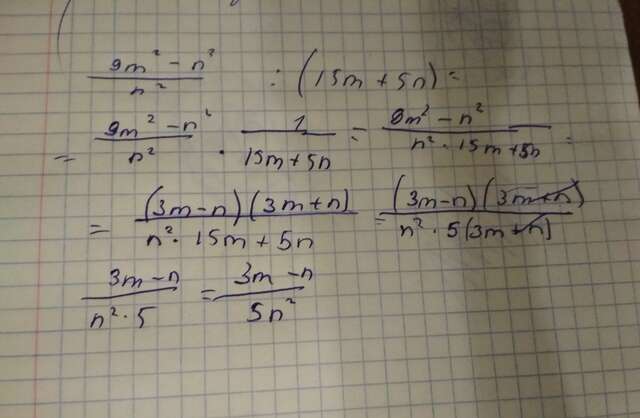 (9m² - n²)/n² : (15m + 5n) =
= (9m² - n²)/n² · 1/(15m + 5n) = (9m² - n²)/(n² · 15m + 5n) =
= ((3m - n)(3m + n))/(n² · 15m + 5n) = ((3m - n)(3m + n))/(n² · 5(3m + n))
(3m - n)/(n² · 5) = (3m - n)/(5n²)